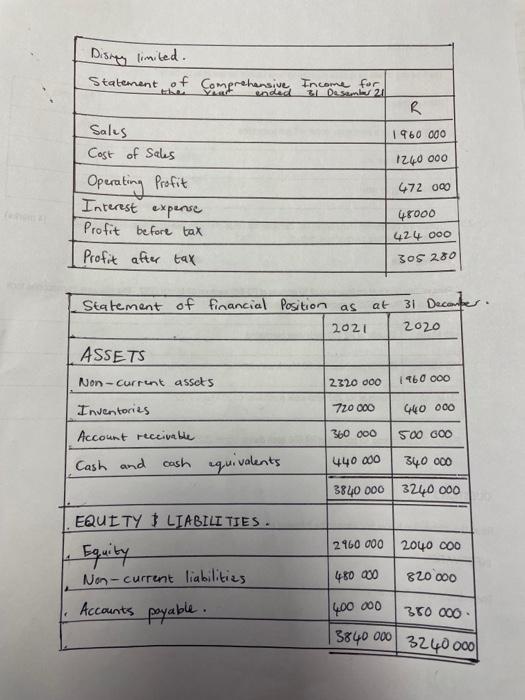 Disney limited.
Statement of Comprehensive Income for
the Year ended 31 Desember 21
R
Sales 1960 000
Cost of Sales 1240 000
Operating Profit 472 000
Interest expense 48000
Profit before tax 424 000
Profit after tax 305 280
Statement of financial Position as at 31 December.
2021 2020
ASSETS
Non-current assets 2320 000 1960 000
Inventories 720 000 440 000
Account receivable 360 000 500 000
Cash and cash equivalents 440 000 340 000
3840 000 3240 000
EQUITY & LIABILITIES.
Equity 2960 000 2040 000
Non-current liabilities 480 000 820 000
Accounts payable. 400 000 380 000.
3840 000 3240 000